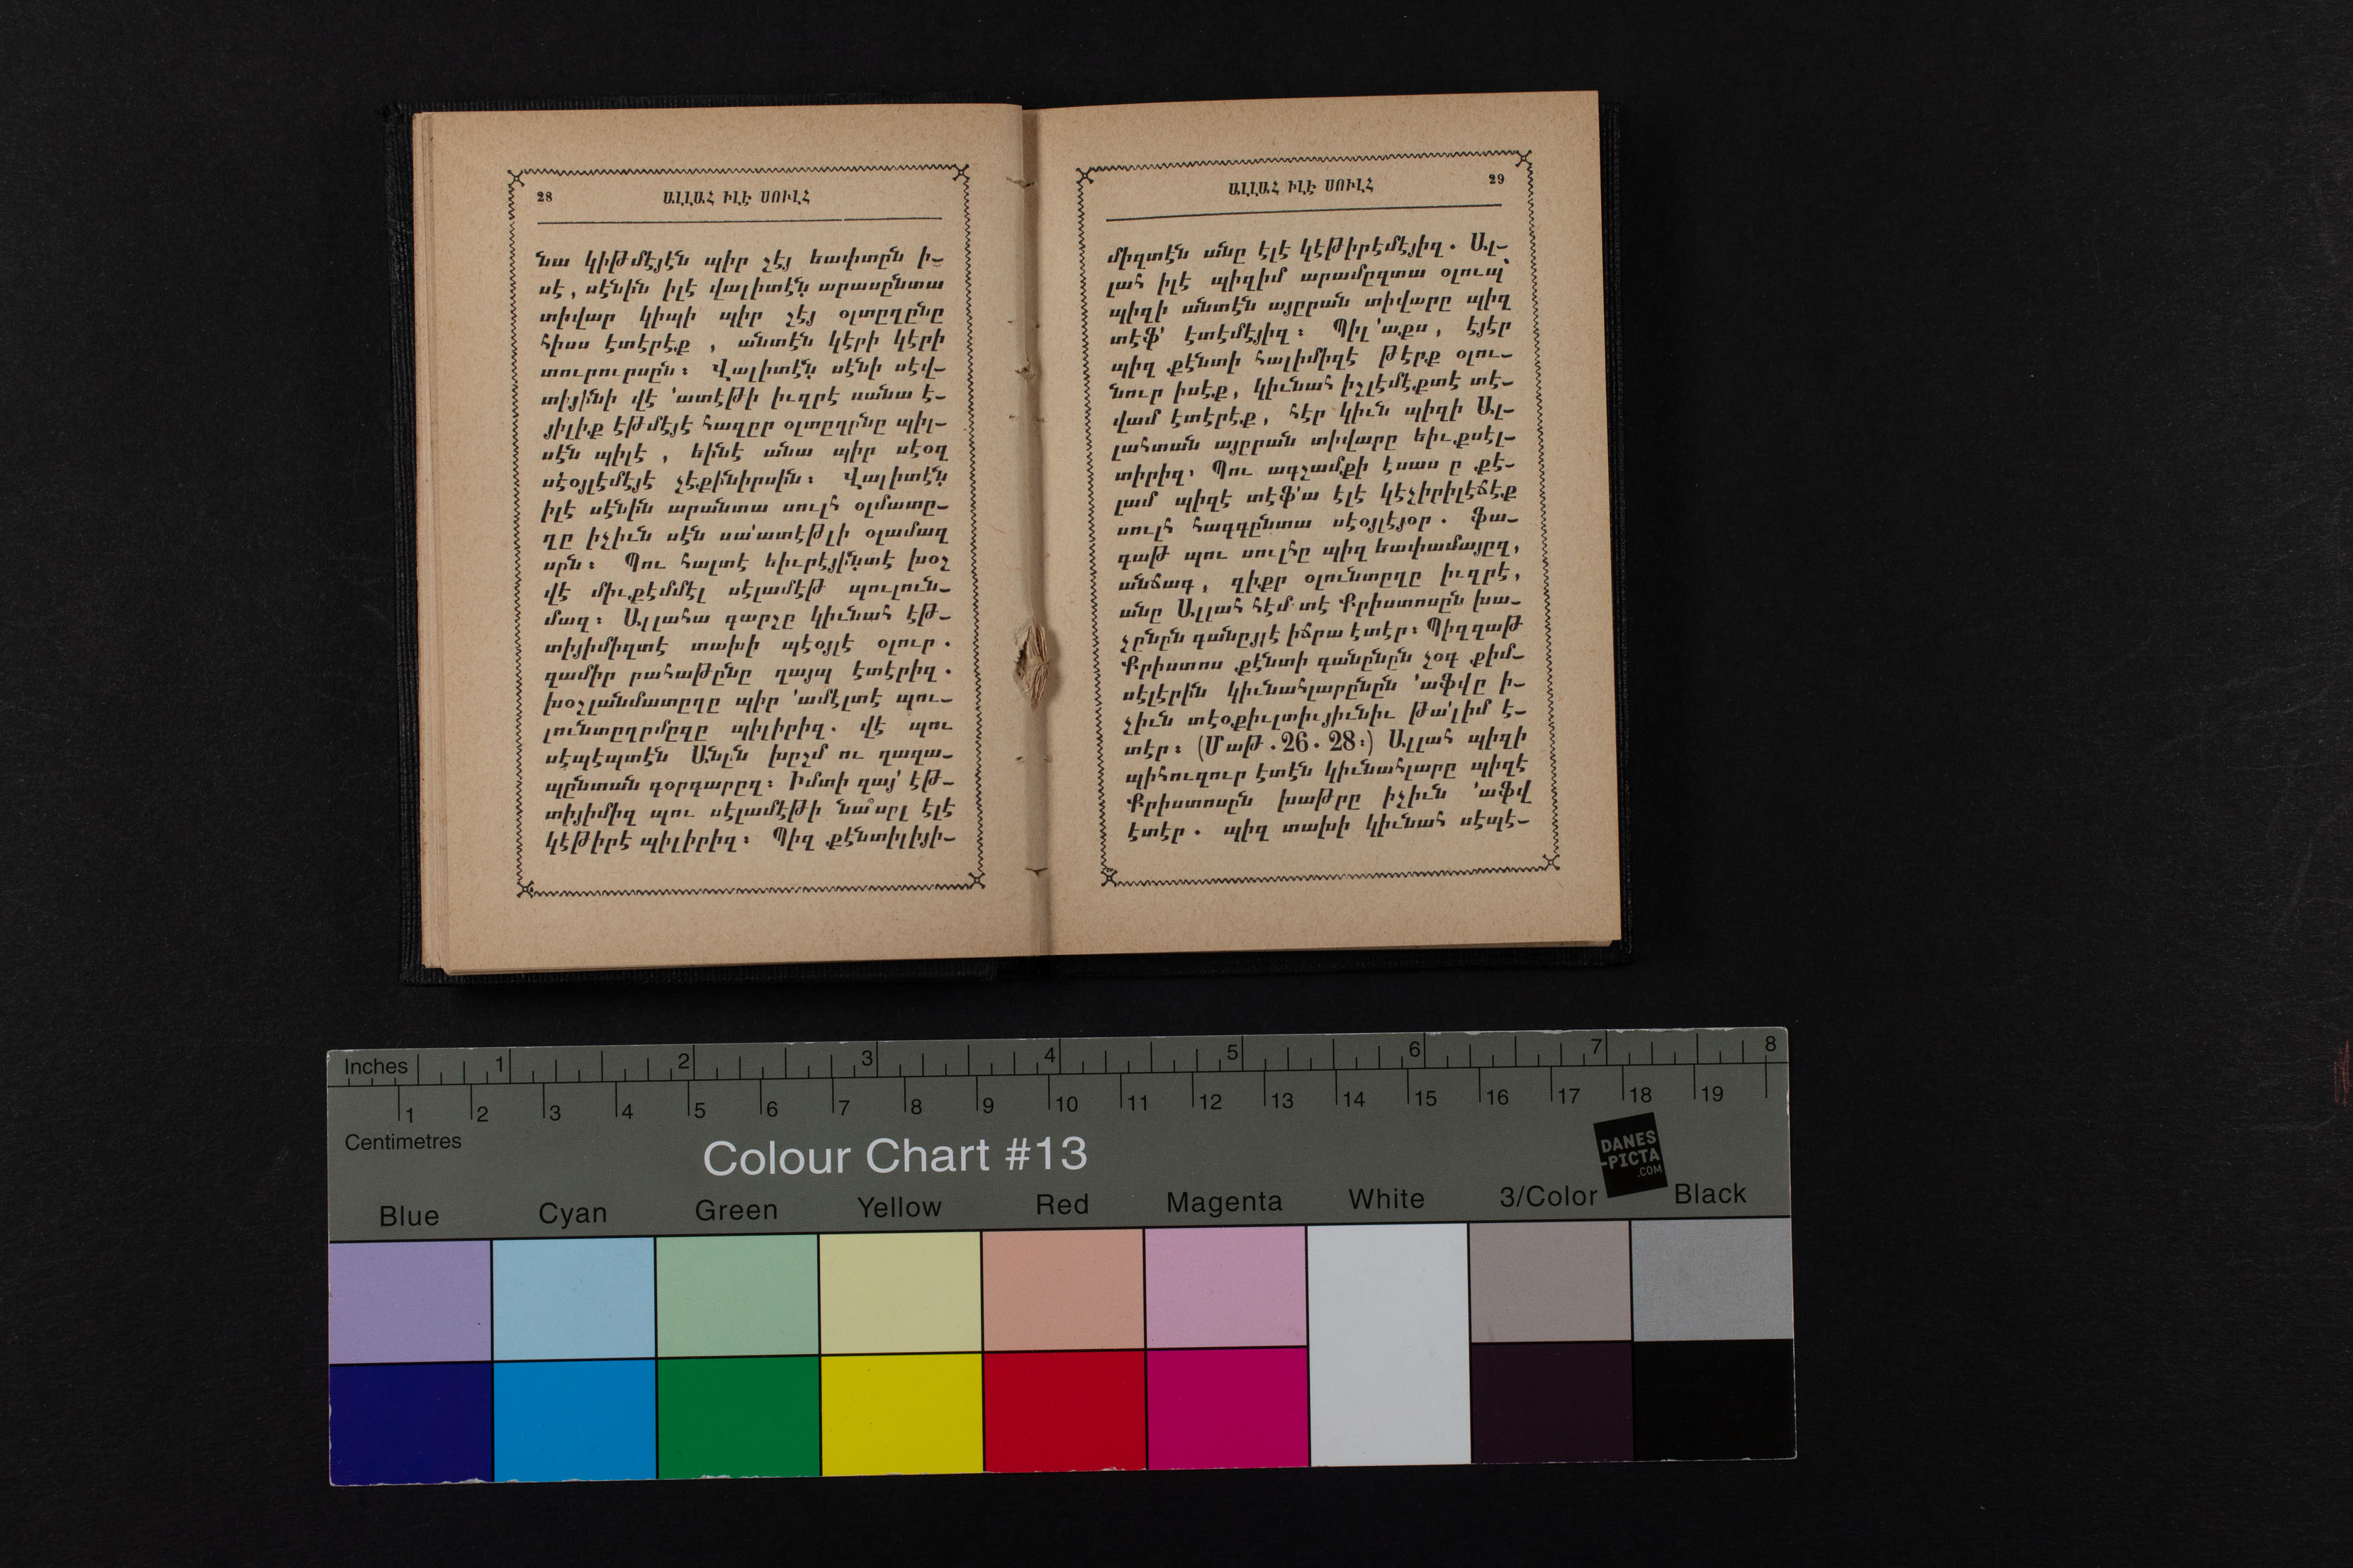 28 ԱԼԼԱՀ ԻԼԷ ՍՈՒԼՀ
նա կիթմէյէն պիր չէյ եափտըն ի-
սէ, սէնին իլէ վալիտէն արասընտա
տիվար կիպի պիր չէյ օլտըղընը
հիսս էտէրէք, անտէն կէրի կէրի
տուրուրսըն։ Վալիտէն սէնի սէվ-
տիյինի վէ ՚ատէթի իւզրէ սանա է-
յիլիք էթմէյէ հազըր օլտըղընը պիլ-
սէն պիլէ, եինէ անա պիր սէօզ
սէօյլէմէյէ չէքինիրսին։ Վալիտէն
իլէ սէնին արանտա սուլհ օլմատը-
ղը իչիւն սէն սա՚ատէթլի օլամազ
սըն։ Պու հալտէ եիւրէյինտէ խօշ
վէ միւքէմմէլ սէլամէթ պուլուն-
մազ։ Ալլահա գարշը կիւնահ էթ-
տիյիմիզտէ տախի պէօյլէ օլուր.
զամիր րահաթընը ղայպ էտէրիզ.
խօշլանմատըղը պիր ՚ամէլտէ պու-
լունտըղըմըզը պիլիրիզ. վէ պու
սէպէպտէն Անըն խըշմ ու ղազա-
պընտան գօրգարըզ։ Իմտի զայ՚ էթ-
տիյիմիզ պու սէլամէթի նա՞սըլ էլէ
կէթիրէ պիլիրիզ։ Պիզ քէնտիլիյի-
ԱԼԼԱՀ ԻԼԷ ՍՈՒԼՀ 29
միզտէն անը էլէ կէթիրէմէյիզ. Ալ-
լահ իլէ պիզիմ արամըզտա օլուպ՝
պիզի անտէն այըրան տիվարը պիզ
տէֆ՚ էտէմէյիզ։ Պիլ՚աքս, էյէր
պիզ քէնտի հալիմիզէ թէրք օլու-
նուր իսէք, կիւնահ իշլէմէքտէ տէ-
վամ էտէրէք, հէր կիւն պիզի Ալ-
լահտան այըրան տիվարը եիւքսէլ-
տիրիզ։ Պու ագշամքի էսաս ը քէ-
լամ պիզէ տէֆ՚ա էլէ կէչիրիլէճէք
սուլհ հագգընտա սէօյլէյօր. Ֆա-
գաթ պու սուլհը պիզ եափամայըզ,
անճագ, զիքր օլունտըղը իւզրէ,
անը Ալլահ հէմ տէ Քրիստոսըն խա-
չընըն գանըյլէ իճրա էտէր։ Պիզզաթ
Քրիստոս քէնտի գանընըն չօգ քիմ-
սէլէրին կիւնահլարընըն ՚աֆվը ի-
չիւն տէօքիւլտիւյիւնիւ թա՚լիմ է-
տէր։ (Մաթ. 26. 28։) Ալլահ պիզի
պիհուզուր էտէն կիւնահլարը պիզէ
Քրիստոսըն խաթըը իչիւն ՚աֆվ
էտէր. պիզ տախի կիւնահ սէպէ-
Inches 1 2 3 4 5 6 7 8
1 2 3 4 5 6 7 8 9 10 11 12 13 14 15 16 17 18 19
Centimetres
Colour Chart #13
DANES
-PICTA
.COM
Blue Cyan Green Yellow Red Magenta White 3/Color Black